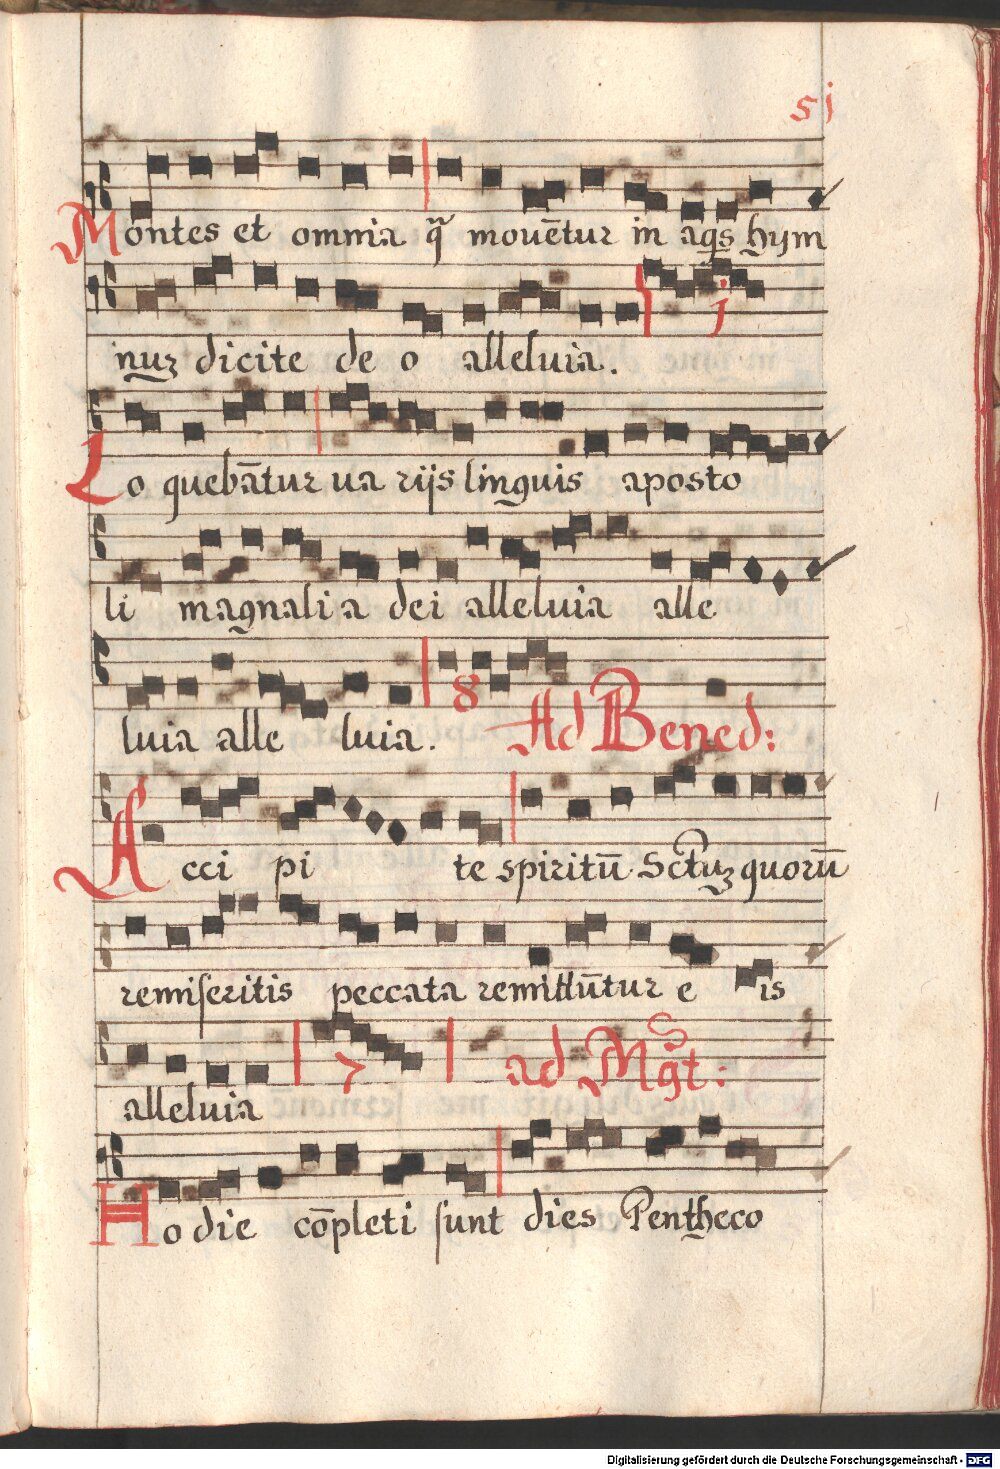 51
Montes et omnia q̃ mouētur in aq̃s hym
nuz dicite de o alleluia.
1
Lo quebātur ua rijs linguis aposto
li magnalia dei alleluia alle
luia alle luia. 8 Ad Bened:
Acci pi te spiritū Sctuz quorū
remiseritis peccata remittūtur e is
alleluia 7 ad Mgt:
Ho die cōpleti sunt dies Pentheco
Digitalisierung gefördert durch die Deutsche Forschungsgemeinschaft - DFG